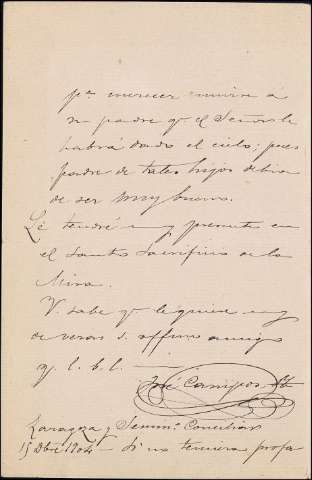 pª merecer enviar á
su padre qe el Señor le
habrá dado el cielo; pues
padre de tales hijos debia
de ser muy bueno.
Le tendré muy presente en
el Santo Sacrificio de la
Misa.
V. sabe qe le quiere muy
de veras s. affmo amigo
q. l. b. l.
José Campos
Zaragoza y Semino Conciliar
15 Dbre 1904 — Si no tuviera profe